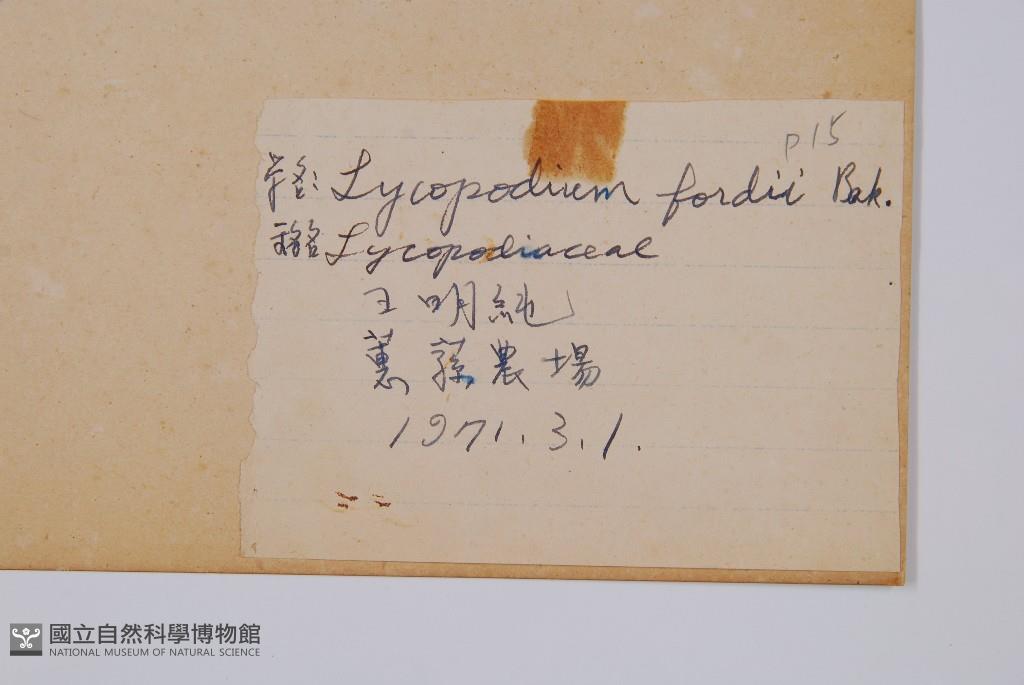 p15
学名: Lycopodium fordii Bak.
Lycopodiaceae
王明純
蕙蓀農場
1971.3.1.
國立自然科學博物館
NATIONAL MUSEUM OF NATURAL SCIENCE